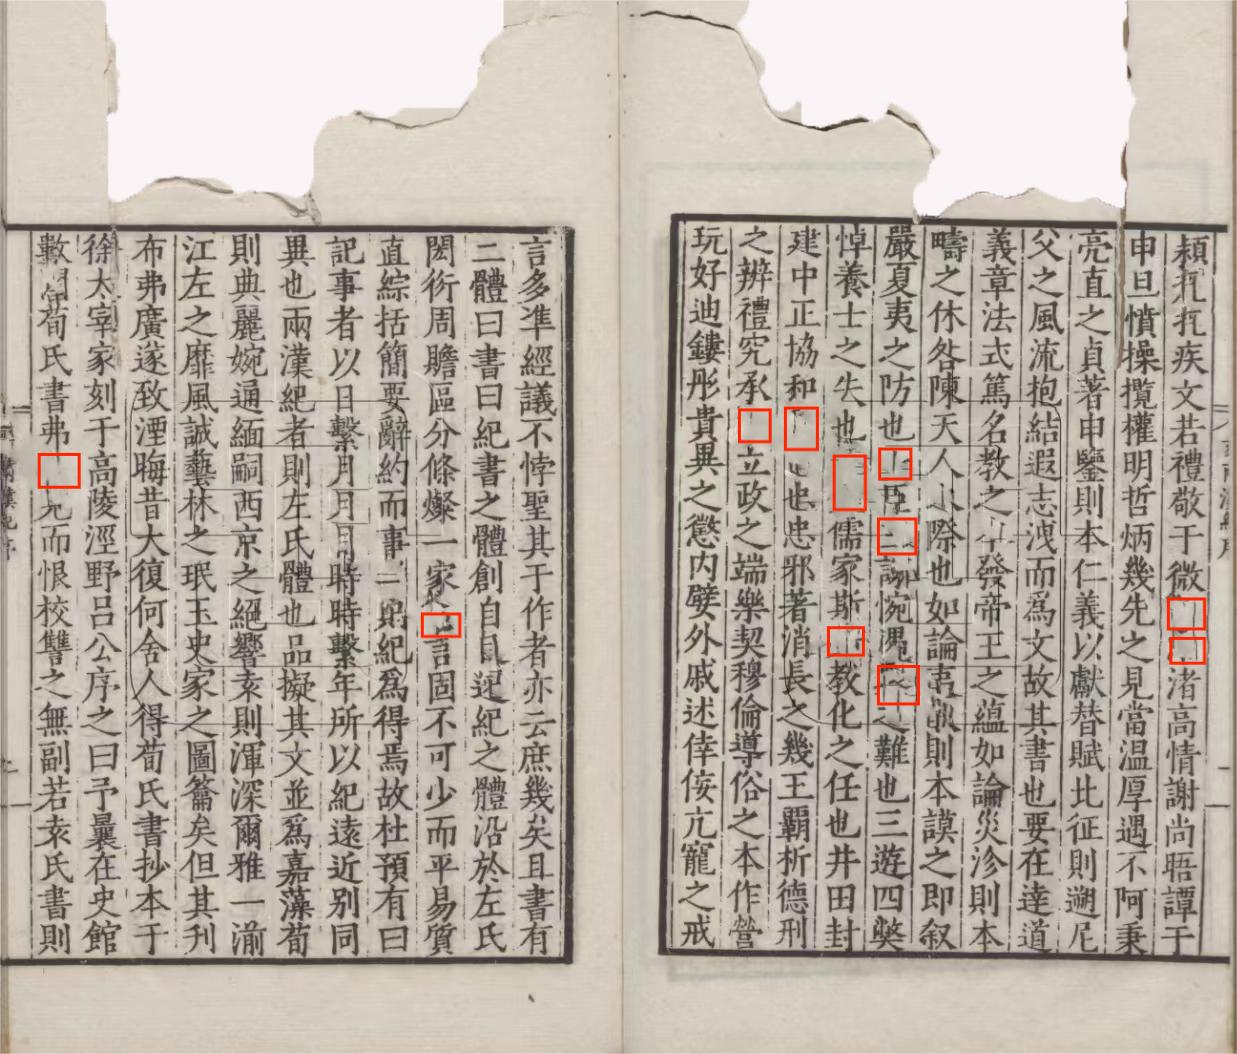 頴抏抏疾文若禮敬于微渚高情謝尚晤譚于
申旦憤操攬權明哲炳幾先之見當温厚遇不阿秉
亮直之貞著申鑒則本仁義以獻替賦比征則遡尼
父之風流抱結遐志洩而爲文故其書也要在達道
義章法式篤名教之發帝王之蘊如論災沴則本
疇之休咎陳天人際也如論夷則本謨之即叙
嚴夏夷之防也惋難也三遊四獘
悼養士之失也儒家斯教化之任也井田封
建中正協和也忠邪著消長之幾王覇析德刑
之辨禮究承立政之端樂契穆倫導俗之本作營
玩好迪鏤彤貴異之懲内嬖外戚述倖侫亢寵之戒
言多準經議不悖聖其于作者亦云庶幾矣且書有
二體曰書曰紀書之體創自遷紀之體沿於左氏
閎衍周贍區分條燦一家言固不可少而平易質
直綜括簡要辭約而事則紀爲得焉故杜預有曰
記事者以日繫月月月時時繫年所以紀遠近別同
異也兩漢紀者則左氏體也品擬其文並爲嘉藻荀
則典麗婉通緬嗣西京之絕響袁則渾深爾雅一湔
江左之靡風誠藝林之珉玉史家之圖籥矣但其刋
布弗廣遂致湮晦昔大復何舍人得荀氏書抄本于
徐太宰家刻于高陵涇野吕公序之曰予曩在史館
數荀氏書弗而恨校讐之無副若袁氏書則